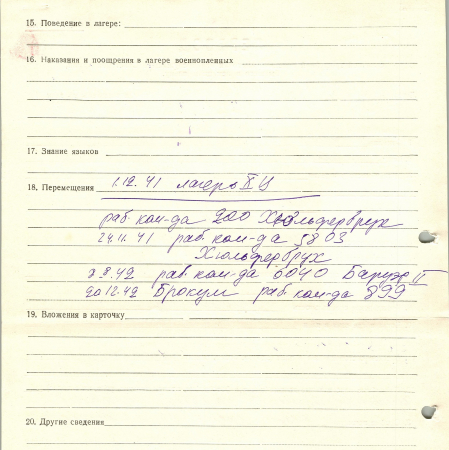 15. Поведение в лагере:
16. Наказания и поощрения в лагере военнопленных
17. Знание языков
18. Перемещения 1.12.41 лагерь X Ц
раб. ком-да 200 Хюльфербрук
24.11.41 раб. ком-да 5803
Хюльфербрух
8.42 раб. ком-да 6040 II
до 12.42 Брокум раб. ком-да 899
19. Вложения в карточку
20. Другие сведения